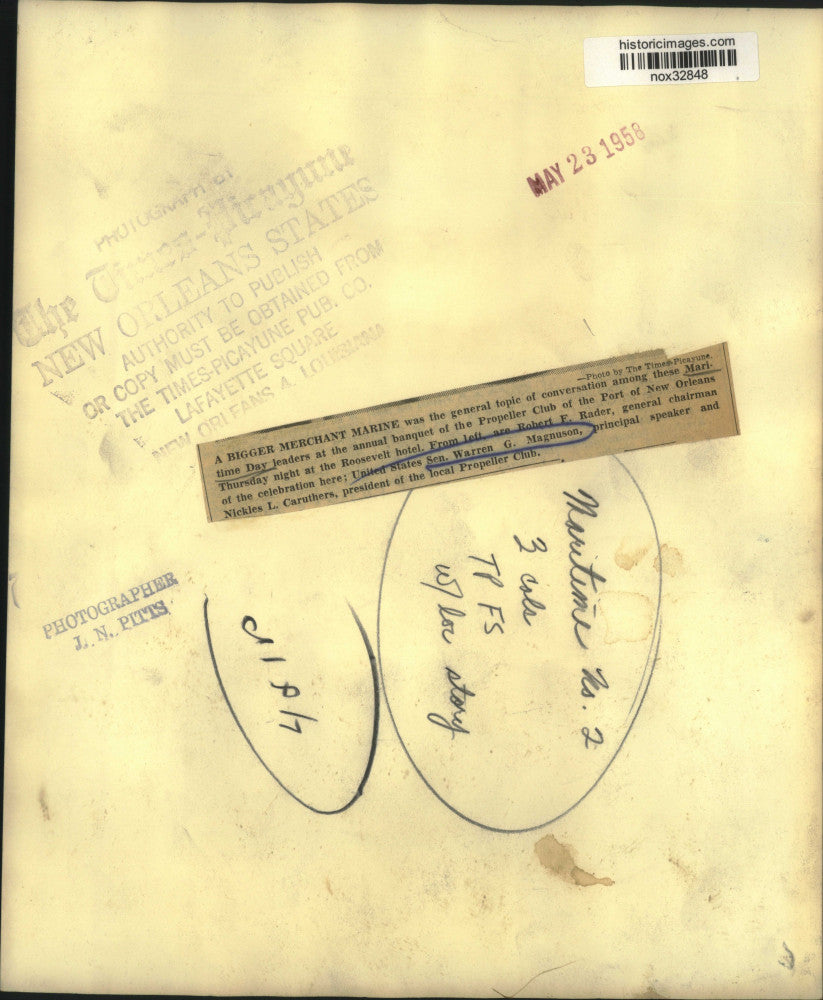 historicimages.com
nox32848
MAY 23 1958
PHOTOGRAPH BY
The Times-Picayune
NEW ORLEANS STATES
AUTHORITY TO PUBLISH
OR COPY MUST BE OBTAINED FROM
THE TIMES-PICAYUNE PUB. CO.
LAFAYETTE SQUARE
NEW ORLEANS 4, LOUISIANA
—Photo by The Times-Picayune.
A BIGGER MERCHANT MARINE was the general topic of conversation among these Mari-
time Day leaders at the annual banquet of the Propeller Club of the Port of New Orleans
Thursday night at the Roosevelt hotel. From left, are Robert F. Rader, general chairman
of the celebration here; United States Sen. Warren G. Magnuson, principal speaker and
Nickles L. Caruthers, president of the local Propeller Club.
Maritime No. 2
3 cols
TP FS
w/ loc story
PHOTOGRAPHER
J. N. PITTS